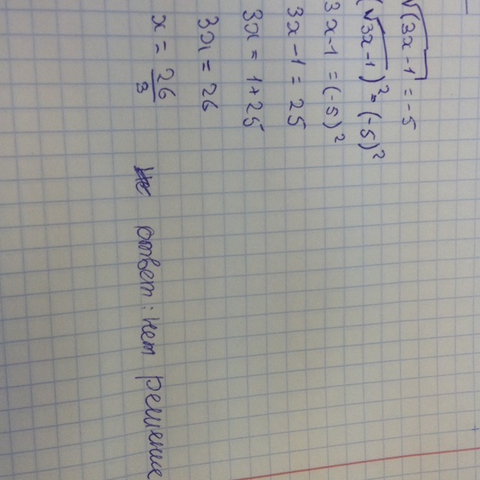 √(3x-1) = -5
(√3x-1)² = (-5)²
3x-1 = (-5)²
3x-1 = 25
3x = 1+25
3x = 26
x = 26/3
ответ: нет решение